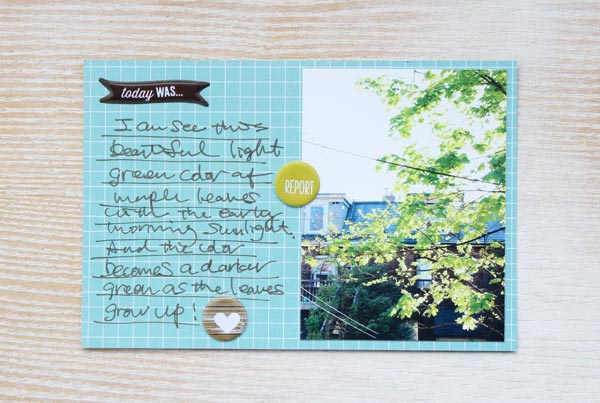 today WAS...
I can see this
beautiful light
green color of
maple leaves
with the early
morning sunlight.
And the color
becomes a darker
green as the leaves
grow up!
REPORT